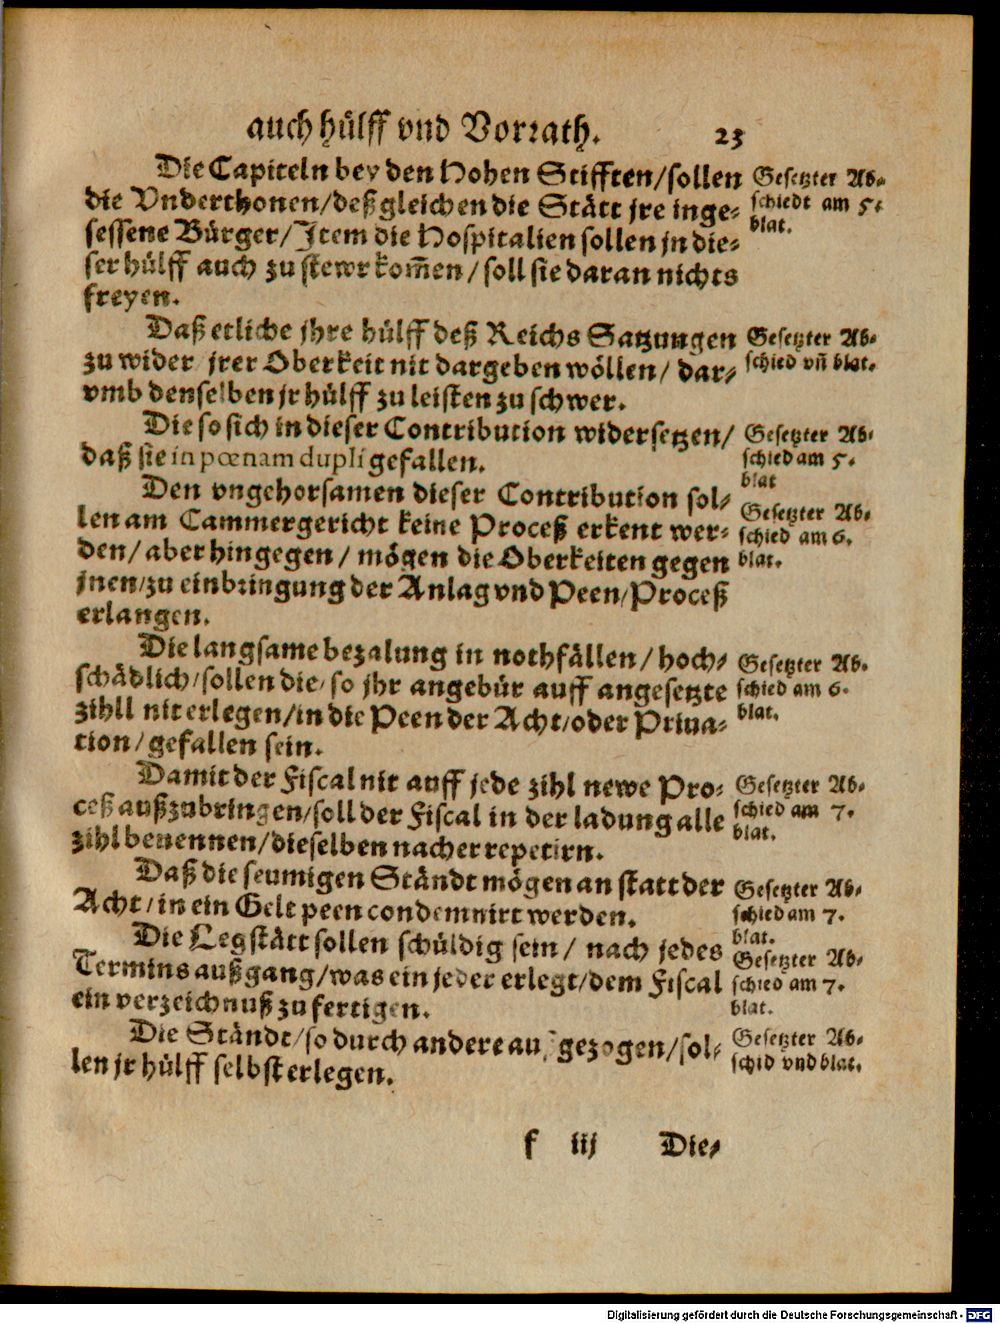 auch hülff vnd Vorrath. 23
Die Capiteln bey den Hohen Stifften/sollen
die Vnderthonen/deßgleichen die Stätt jre inge-
sessene Bürger/Item die Hospitalien sollen jn die-
ser hülff auch zu stewr kom̃en/soll sie daran nichts
freyen.
Gesetzter Ab-
schiedt am 5.
blat.
Daß etliche jhre hülff deß Reichs Satzungen
zu wider jrer Oberkeit nit dargeben wöllen/ dar-
vmb denselben jr hülff zu leisten zu schwer.
Gesetzter Ab-
schied vñ blat.
Die so sich in dieser Contribution widersetzen/
daß sie in pœnam dupli gefallen.
Gesetzter Ab-
schied am 5.
blat
Den vngehorsamen dieser Contribution sol-
len am Cammergericht keine Proceß erkent wer-
den/aber hingegen/ mögen die Oberkeiten gegen
jnen/zu einbringung der Anlag vnd Peen/Proceß
erlangen.
Gesetzter Ab-
schied am 6.
blat.
Die langsame bezalung in nothfällen/hoch-
schädlich/sollen die/so jhr angebür auff angesetzte
zihll nit erlegen/in die Peen der Acht/oder Priua-
tion/gefallen sein.
Gesetzter Ab-
schied am 6.
blat.
Damit der Fiscal nit auff jede zihl newe Pro-
ceß außzubringen/soll der Fiscal in der ladung alle
zihl benennen/dieselben nacher repetirn.
Gesetzter Ab-
schied am 7.
blat.
Daß die seumigen Ständt mögen an statt der
Acht/in ein Gelt peen condemnirt werden.
Gesetzter Ab-
schied am 7.
blat.
Die Legstätt sollen schüldig sein/ nach jedes
Termins außgang/was ein jeder erlegt/dem Fiscal
ein verzeichnuß zu fertigen.
Gesetzter Ab-
schied am 7.
blat.
Die Ständt/so durch andere außgezogen/sol-
len jr hülff selbst erlegen.
Gesetzter Ab-
schid vnd blat.
f iij Die-
Digitalisierung gefördert durch die Deutsche Forschungsgemeinschaft - DFG